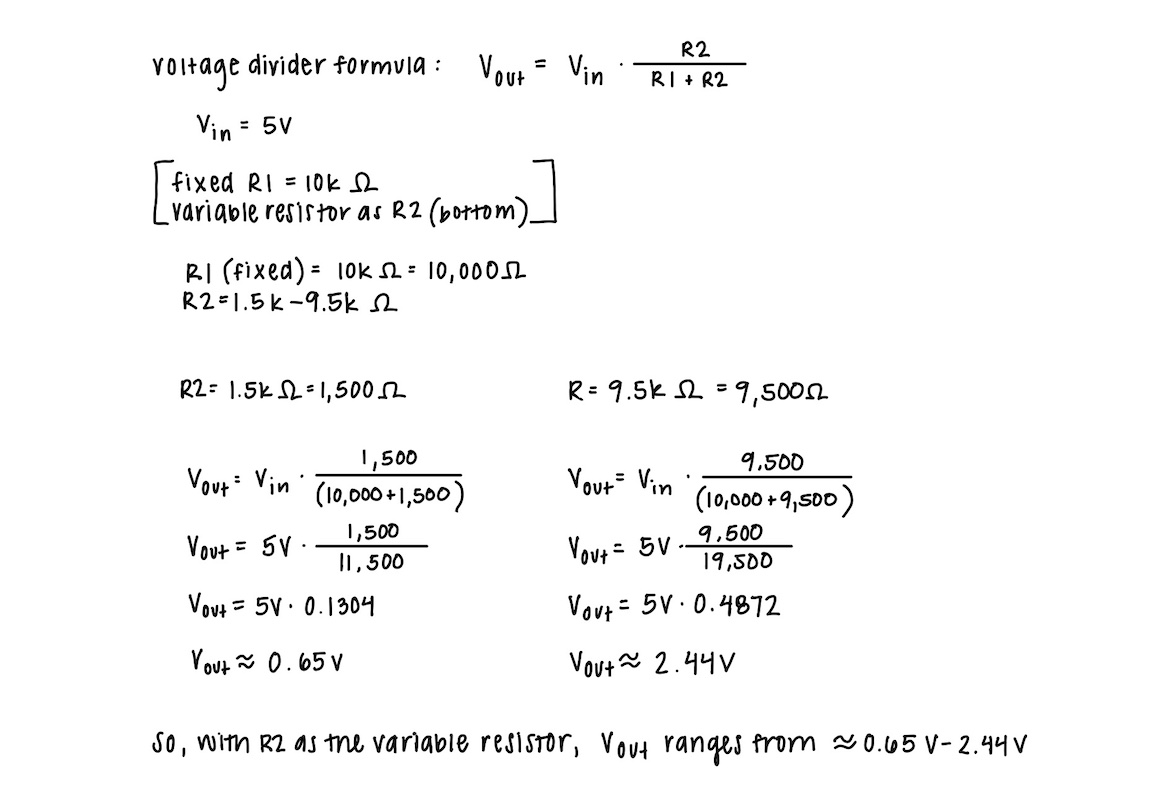 voltage divider formula: Vout = Vin · R2 / (R1 + R2)
Vin = 5V
[fixed R1 = 10k Ω
variable resistor as R2 (bottom)]
R1 (fixed) = 10k Ω = 10,000Ω
R2=1.5k-9.5k Ω
R2= 1.5k Ω=1,500Ω
Vout= Vin · 1,500 / (10,000+1,500)
Vout = 5V · 1,500 / 11,500
Vout = 5V · 0.1304
Vout ≈ 0.65V
R= 9.5k Ω = 9,500Ω
Vout= Vin · 9.500 / (10,000+9,500)
Vout= 5V · 9,500 / 19,500
Vout = 5V · 0.4872
Vout ≈ 2.44V
So, with R2 as the variable resistor, Vout ranges from ≈0.65 V-2.44V